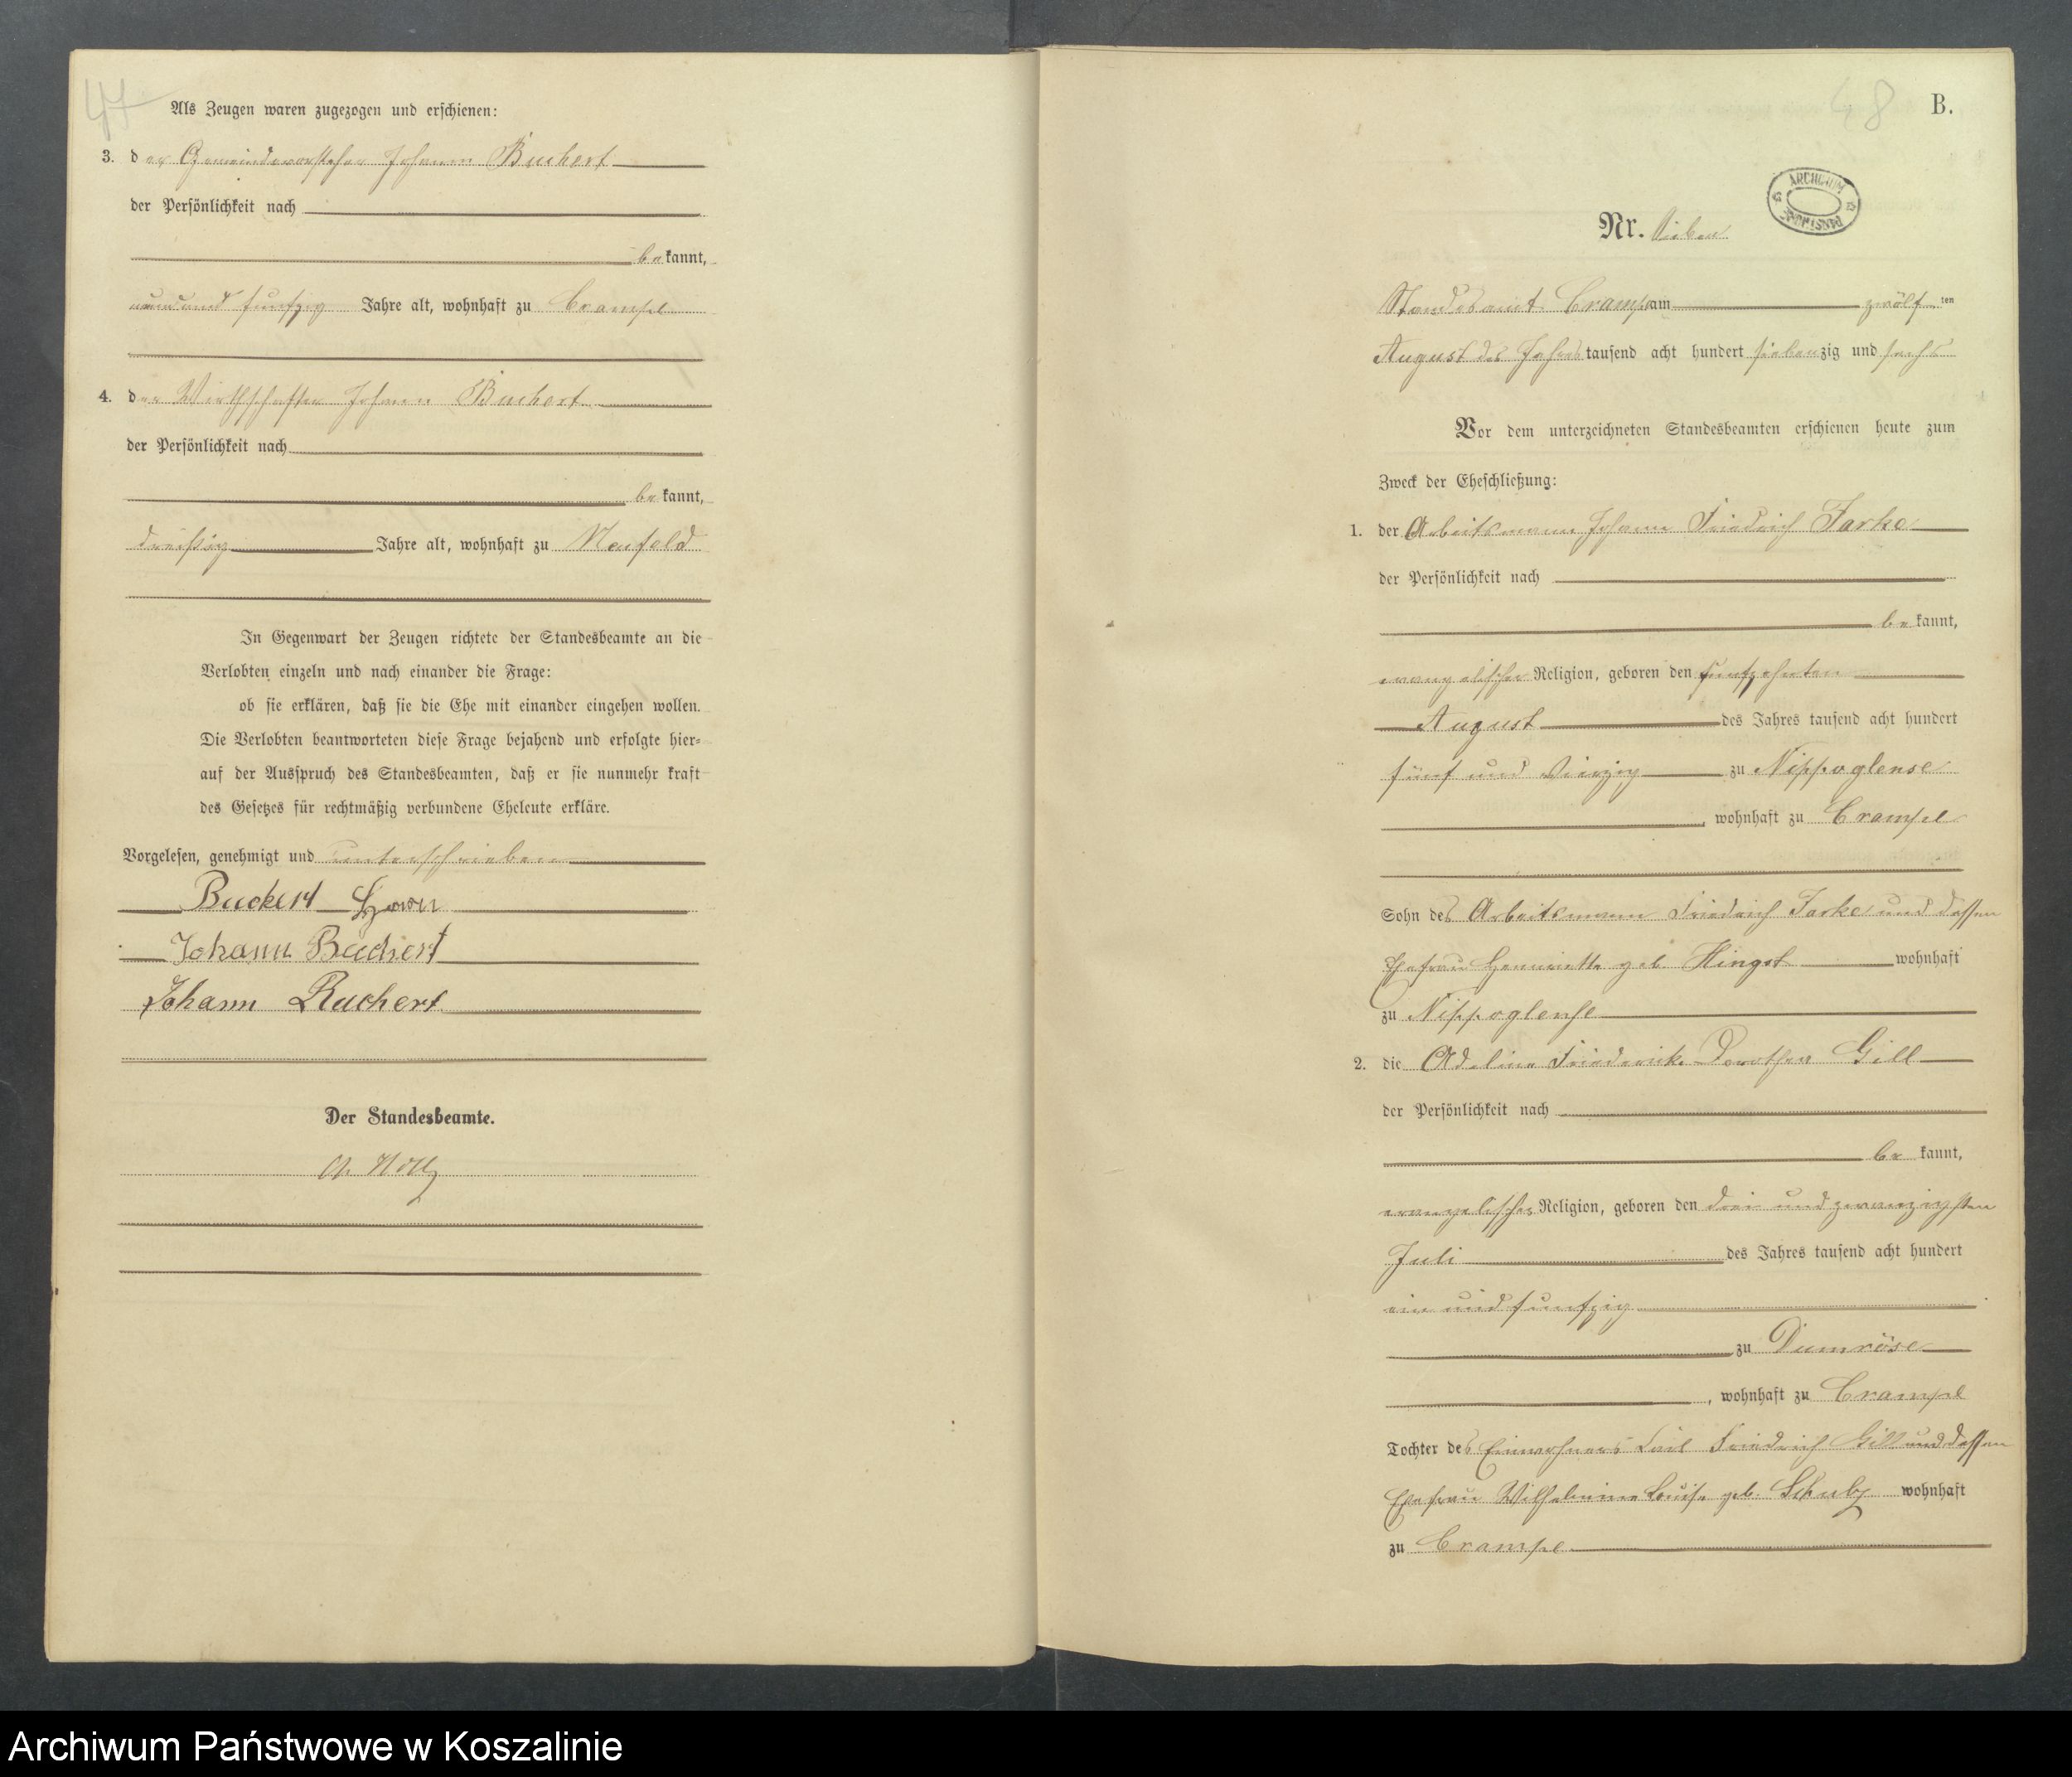 47
Als Zeugen waren zugezogen und erschienen:
3. der Gemeindevorsteher Johann Buchert
der Persönlichkeit nach
bekannt,
und funfzig Jahre alt, wohnhaft zu Crampe
4. der Wirthschafter Johann Buchert
der Persönlichkeit nach
bekannt,
dreißig Jahre alt, wohnhaft zu Neufeld
In Gegenwart der Zeugen richtete der Standesbeamte an die
Verlobten einzeln und nach einander die Frage:
ob sie erklären, daß sie die Ehe mit einander eingehen wollen.
Die Verlobten beantworteten diese Frage bejahend und erfolgte hier-
auf der Ausspruch des Standesbeamten, daß er sie nunmehr kraft
des Gesetzes für rechtmäßig verbundene Eheleute erkläre.
Vorgelesen, genehmigt und unterschrieben
Buckert
Johann Buchert
Johann Buchert
Der Standesbeamte.
48
B.
ARCHIWUM
Nr. Sieben
Standesamt Crampe am zwölften
August des Jahres tausend acht hundert siebenzig und sechs
Vor dem unterzeichneten Standesbeamten erschienen heute zum
Zweck der Eheschließung:
1. der Arbeitsmann Johann Friedrich Tarke
der Persönlichkeit nach
bekannt,
evangelischer Religion, geboren den funfzehnten
August des Jahres tausend acht hundert
fünf und vierzig zu Nippoglense
, wohnhaft zu Crampe
Sohn des Arbeitsmann Friedrich Tarke und dessen
Ehefrau Henriette geb Hingst wohnhaft
zu Nippoglense
2. die Adeline Friedericke Dorothea Gill
der Persönlichkeit nach
bekannt,
evangelischer Religion, geboren den drei und zwanzigsten
Juli des Jahres tausend acht hundert
ein und funfzig
zu Dumröse
, wohnhaft zu Crampe
Tochter des Einwohners Carl Friedrich Gill und dessen
Ehefrau Wilhelmine Louise geb. Schulz wohnhaft
zu Crampe
Archiwum Państwowe w Koszalinie